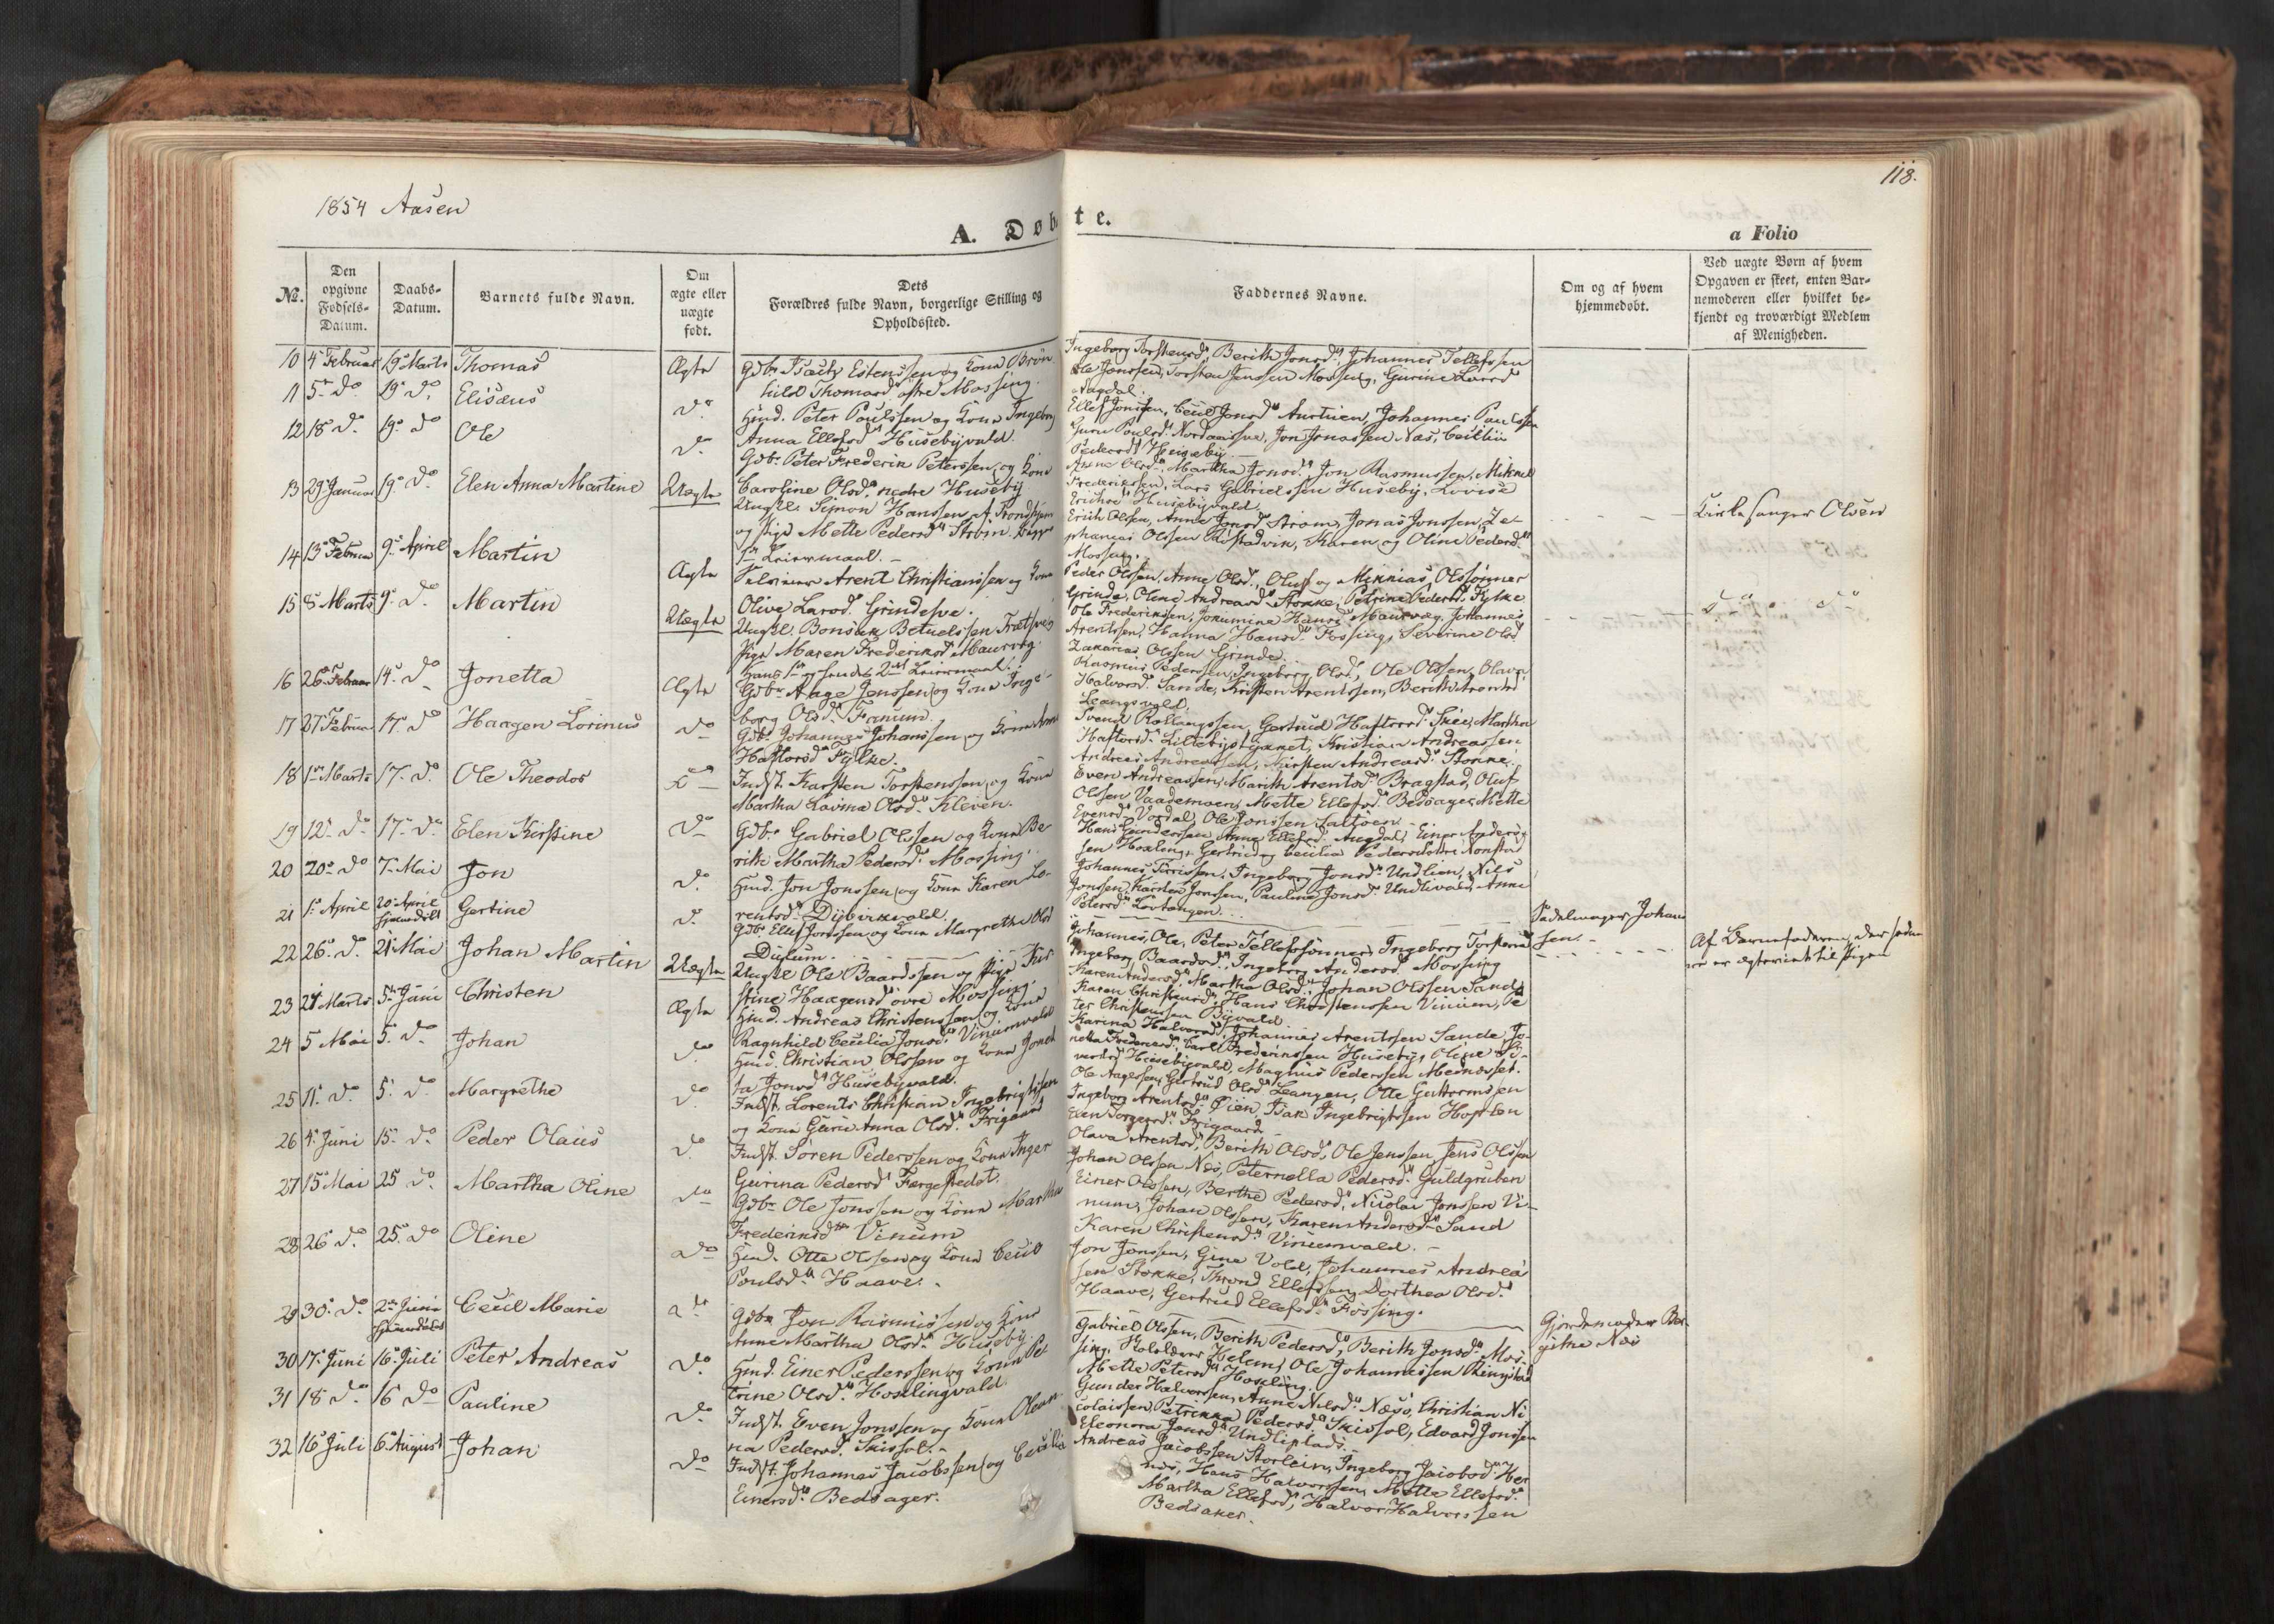 118.
1854 Aasen
A. Døbte.
a Folio
No.
Den opgivne Fødsels-Datum.
Daabs-Datum.
Barnets fulde Navn.
Om ægte eller uægte født.
Dets Forældres fulde Navn, borgerlige Stilling og Opholdssted.
Faddernes Navne.
Om og af hvem hjemmedøbt.
Ved uægte Børn af hvem Opgaven er skeet, enten Barnemoderen eller hvilket bekjendt og troværdigt Medlem af Menigheden.
10 4 Februar 19 Marts Thomas Ægte
Gdbr. Isach Estenssen og Kone Brøn
hild Thomasd. øfre Mossing.
Ingeborg Torstensd., Berith Jonsd., Johannes Tellefssen
Ole Jonssen, Torsten Jenssen Mossing, Gurine Larsd
11 5 do 19 do Elisæus do
Huud. Peter Paulssen og Kone Ingeborg
Anna Ellefsd. Husebyvald.
Ellef Jonssen, Cecil Jonsd. Austuen, Johannes Paulssen
12 18 do 19 do Ole do
Gdbr. Peter Frederik Peterssen og Kone
Caroline Olsd. nedre Huseby
Pedersd. Huseby.
Anne Olsd., Martha Jonsd., Jon Rasmussen, Mikael
Frederikssen, Lars Gabrielssen Huseby, Lovise
Husebyvald.
13 29 Januar 19 do Elen Anna Martine Uægte
Ungkl. Simon Hanssen, Trondhjem
og Pige Mette Pedersd. Strøm. Begges
1ste Leiermaal.
Erich Olssen, Anne Jonsd. Strøm, Jonas Jonssen, Ze-
phanias Olssen Ristadvik, Karen og Oline Pedersd.
Mossing.
Kirkesanger Olsen
14 13 Februar 9 April Martin Ægte
Arent Christianssen og Kone
Olive Larsd. Grindesve.
Peder Olssen, Anne Olsd., Oluf og Minnias Olssønner
Grinde, Oline Andreasd. Stokke, Petrine Pedersd. Fylke
15 8 Marts 9 do Martin Uægte
Ungkl. Bonsak Betuelssen
Pige Maren Frederiksd. Maurvæg.
Hans 1ste og hendes 2det Leiermaal.
Ole Frederikssen, Jokumine Hansd. Maurvæg, Johannes
Arentssen, Hanna Hansd. Fossing, Severine Olsd.
Zakarias Olssen Grinde.
do do
16 26 Februar 14 do Jonetta Ægte
Gdbr. Aage Jenssen og Kone Inge-
borg Olsd. Fanum.
Rasmus Pederssen, Ingeborg Olsd., Ole Olssen, Olava
Halvorsd. Sande, Kristen Arentssen, Berith Arentsd
Leangsvald.
17 27 Februar 17 do Haagen Lorinus do
Gdbr. Johannes Johanssen og Kone Anne
Haftorsd. Fylke.
Svend Rollaugssen, Gertrud Haftorsd. Skei, Martha
Haftorsd. Kristian Andreassen
Andreas Andreassen, Kirsten Andreasd. Stokke.
18 1 Marts 17 do Ole Theodor do
Indst. Karsten Torstenssen og Kone
Martha Lavina Olsd. Kleven.
Even Andreassen, Marith Arentsd. Bragstad, Oluf
Olssen Vaademoen, Mette Ellefsd. Bedsager, Mette
Evensd. Vordal, Ole Jonssen Saltøen.
19 12 do 17 do Elen Kirstine do
Gdbr. Gabriel Olssen og Kone Be-
rith Martha Pedersd. Mossing.
Hans Gunderssen, Anne Ellefsd. Augdal, Einer Anders-
sen Hoxling, Gertrud og Cecilia Pedersdøttre Nonstad
20 20 do 7 Mai Jon do
Huud. Jon Jonssen og Kone Karen Lo-
rentsd. Dybvikvald.
Johannes Ingeborg Jonsd. Undlien, Nils
Jonssen, Karsten Jonssen, Pauline Jonsd. Undlivald, Anne
Petersd. Lovtangen.
21 1 April 20 April hjemmedøbt Gertine do
Gdbr. Ellef Jonssen og Kone Margrethe Olsd
Duium.
Sadelmager Johans
sen
22 26 do 21 Mai Johan Martin Uægte
Ungkl. Ole Baardssen og Pige Kir
stine Haagensd. øvre Mossing.
Johannes, Ole, Peter Tellefssønner, Ingeborg Torstensd.
Ingeborg Baardsd., Ingeborg Andersd. Mossing
Af Barnefaderen, der senere er ægteviet til Pigen
23 24 Marts 5 Juni Christen Ægte
Huud. Andreas Christenssen og Kone
Ragnhild Cecilia Jonsd. Vinumvald
Karen Andersd., Martha Olsd., Johan Olssen Sand
Karen Christensd., Hans Christenssen Vinum, Pe
ter Christenssen Byvald.
24 5 Mai 5 do Johan do
Huud. Christian Olssen og Kone Jonet
ta Jonsd. Husebyvald.
Karina Halvorsd., Johannes Arentssen Sande, Jo-
Carl Frederikssen Huseby, Oline Si-
vertsd. Husebyvald, Magnus Pederssen
25 11 do 5 do Margrethe do
Indst. Lorents Christian Ingebrigtssen
og Kone Guru Anna Olsd. Frigaard
Ole Aagessen, Gertrud Olsd. Leangen, Otte Guttormssen
Ingeborg Arentsd. Øien, Isak Ingebrigtssen Hopleen
Elen Torgersd. Frigaard
26 4 Juni 15 do Peder Olaus do
Indst. Søren Pederssen og Kone Inger
Gurina Pedersd. Færgestedet.
Olava Arentsd., Berith Olsd., Ole Jenssen, Jens Olssen
Johan Olssen Næs, Peternella Pedersd. Guldgruben
27 15 Mai 25 do Martha Oline do
Gdbr. Ole Jonssen og Kone Martha
Frederiksd. Vinum
Einer Olssen, Berthe Pedersd., Nicolai Jonssen Vi-
num, Johan Olssen, Karen Andersd. Sand
Karen Christensd. Vinumvald.
28 26 do 25 do Oline do
Huud. Otte Olssen og Kone Cecil
Poulsd. Haave.
Jon Jonssen, Gina Vold, Johannes Andrea
sen Stokke, Thrond Ellefssen, Dorthea Olsd.
Haave, Gertrud Ellefsd. Fossing.
29 30 do 2 Juni hjemmedøbt Cecil Marie do
Gdbr. Jon Rasmussen og Kone
Anne Martha Olsd. Huseby.
Gjordemoder Ber-
githe Næs
30 17 Juni 16 Juli Peter Andreas do
Huud. Einer Pederssen og Kone Pet
trine Olsd. Hoselingvald.
Gabriel Olssen, Berith Pedersd., Berith Jonsd. Mos-
sing, Ole Johannessen
Mette Petersd. Hoseling.
31 18 do 16 do Pauline do
Indst. Even Jonssen og Kone Olean
na Pedersd. Skissol.
Gunder Halvorssen, Anne Nilsd. Næss, Christian Ni
colaissen, Petrikka Pedersd. Skissol, Edvard Jonssen
Eleonora Jonsd. Undliplads.
32 16 Juli 6 August Johan do
Indst. Johannes Jacobssen og Cecilia
Einersd. Bedsager.
Andreas Jacobssen Storlein, Ingeborg Jacobsd. Her
nes, Hans Halvorssen, Mette Ellefsd.
Martha Ellefsd., Halvor Halvorssen
Bedsaker.